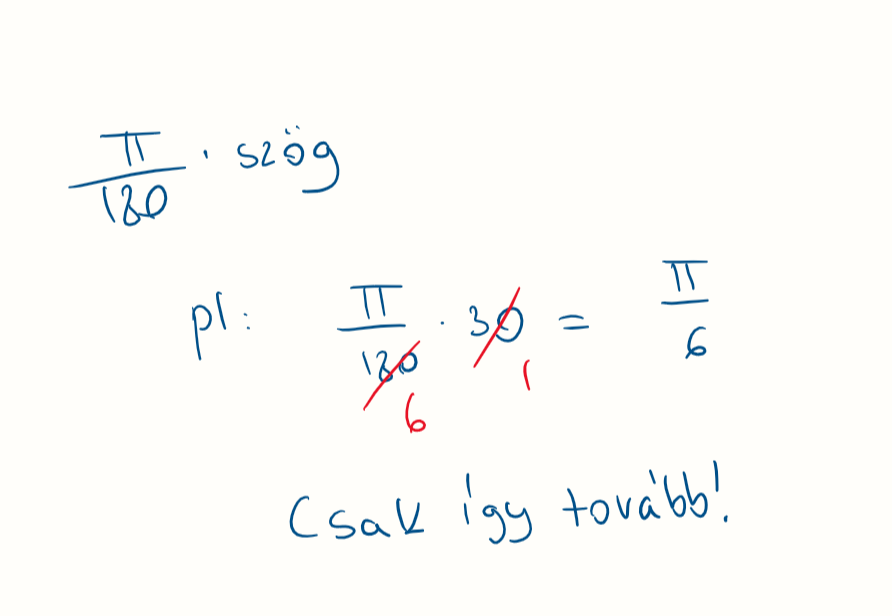 π/180 · szög
pl: π/180 · 30 = π/6
6 1
Csak így tovább!